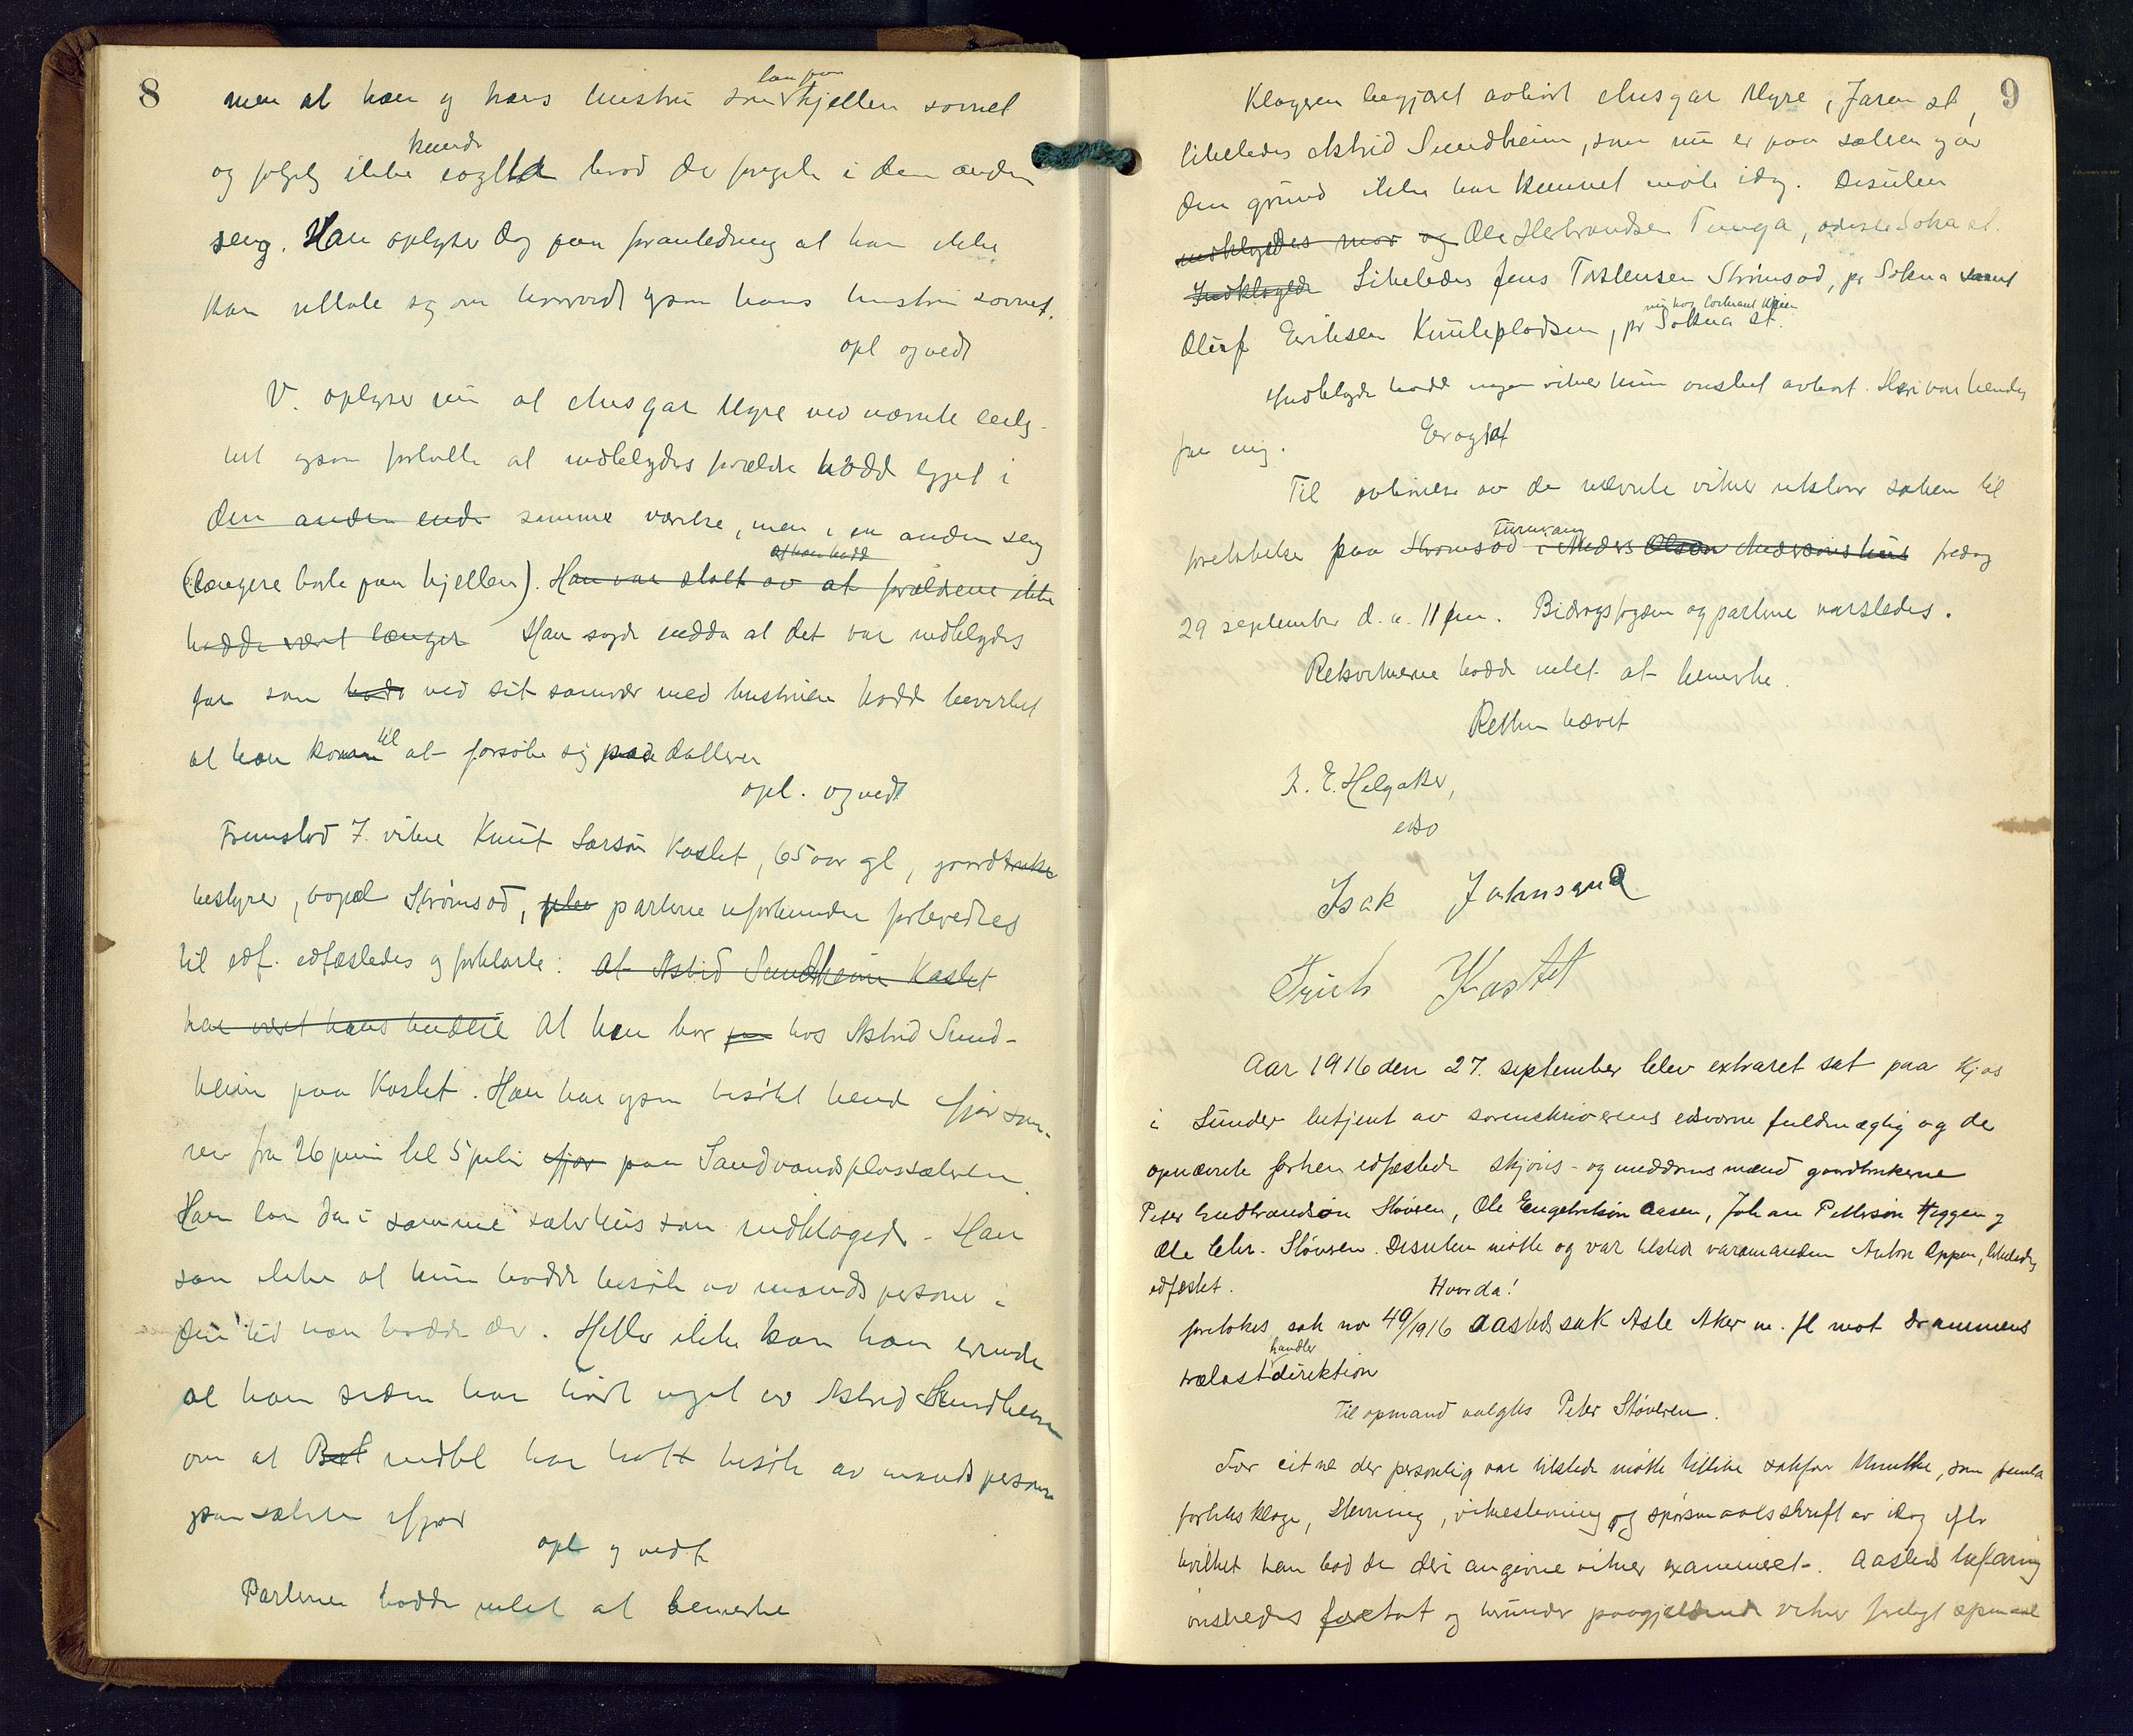 8
men at han og hans hustru som laa paa hjellen sovnet
og følgelig ikke kunde iagtta hvad der foregik i den anden
seng. Han oplyser dog paa foranledning at han ikke
kan uttale sig om hvorvidt ogsaa hans hustru sovnet.
opl og vedt
V. oplyser nu at Ansgar Myre ved nævnte leilig-
het ogsaa fortalte at indklagedes forældre hadde ligget i
den anden ende samme værelse, men i en anden seng
(længere borte paa hjellen). Han var stolt av at forældrene ikke
hadde været længer Han sagde endda at det var indklagedes
far som hadde ved sit samvær med hustruen hadde bevirket
at han kom til at forsøke sig paa datteren
opl. og vedt
Fremstod 7. vitne Knut Larsøn Kaslet, 65 aar gl, gaardbruker
bestyrer, bopæl Strømsod, partene uforbunden forberedtes
til edf. edfæstedes og forklarte: At Astrid Sundheim Kaslet
har været hans At han bor paa hos Astrid Sund-
heim paa Kaslet. Han har ogsaa besøkt hende ifjor som-
mer fra 26 juni til 5 juli ifjor paa Sandvandsplassæteren.
Han laa da i samme sæterhus som indklagede. Han
saa ikke at hun hadde besøk av mandspersoner i
den tid han hadde der. Heller ikke kan han erindre
at han siden har hørt noget av Astrid Sundheim
om at indkl har hat besøk av mandspersoner
paa sæteren ifjor
opl og vedt
Partene hadde intet at bemerke
9
Klageren begjæret avhørt Ansgar Myre, Jaren st,
likeledes Astrid Sundheim, som nu er paa sæteren og av
den grund ikke har kunnet møte idag. Desuten
indklagedes mor og Ole Herbrandsen Tunga, adresse Sokna st.
Indklagede Likeledes Jens Torstensen Strømsod, pr Sokna samt
Oluf Eriksen Knutepladsen, pr Sokna st.
Indklagede hadde ingen vitner hun ønsket avhørt. Heri var hendes
far enig. Eragtet
Til avhørelse av de nævnte vitner utstaar saken til
foretakelse paa Strømsod Turmoang i Anders Olsen fredag
29 september d. a. 11 fm. Bidragsfogden og partene varsledes.
Retsvitnerne hadde intet at bemerke.
Retten hævet
K. E. Helgaker,
edso
Isak Johnsrud
Truls Kastet
Aar 1916 den 27. september blev extraret sat paa Kjos
i Sunder betjent av sorenskriverens edsvorne fuldmægtig og de
opnævnte forhen edfæstede skjøns- og meddomsmænd gaardbrukerne
Peter Gudbrandsøn Støveren, Ole Engebretsøn Aasen, Johan Pettersøn Heggen og
Ole Chr. Støveren. Desuten møtte og var tilstede varamanden Anton Oppen, likeledes
edfæstet. Hvorda!
foretokes sak no 49/1916 aastedssak Asle Aker m. fl mot Drammens
trælasthandlerdirektion
Til opmand valgtes Peter Støveren.
For citne der personlig var tilstede møtte tillike sakfør Munthe, som fremla
forliksklage, stevning, vitnestevning og spørsmaalsskrift av idag efter
hvilket han bad de deri angivne vitner examineret. Aasteds befaring
ønskedes foretat og herunder paagjældende vitner forelagt spørsmaal